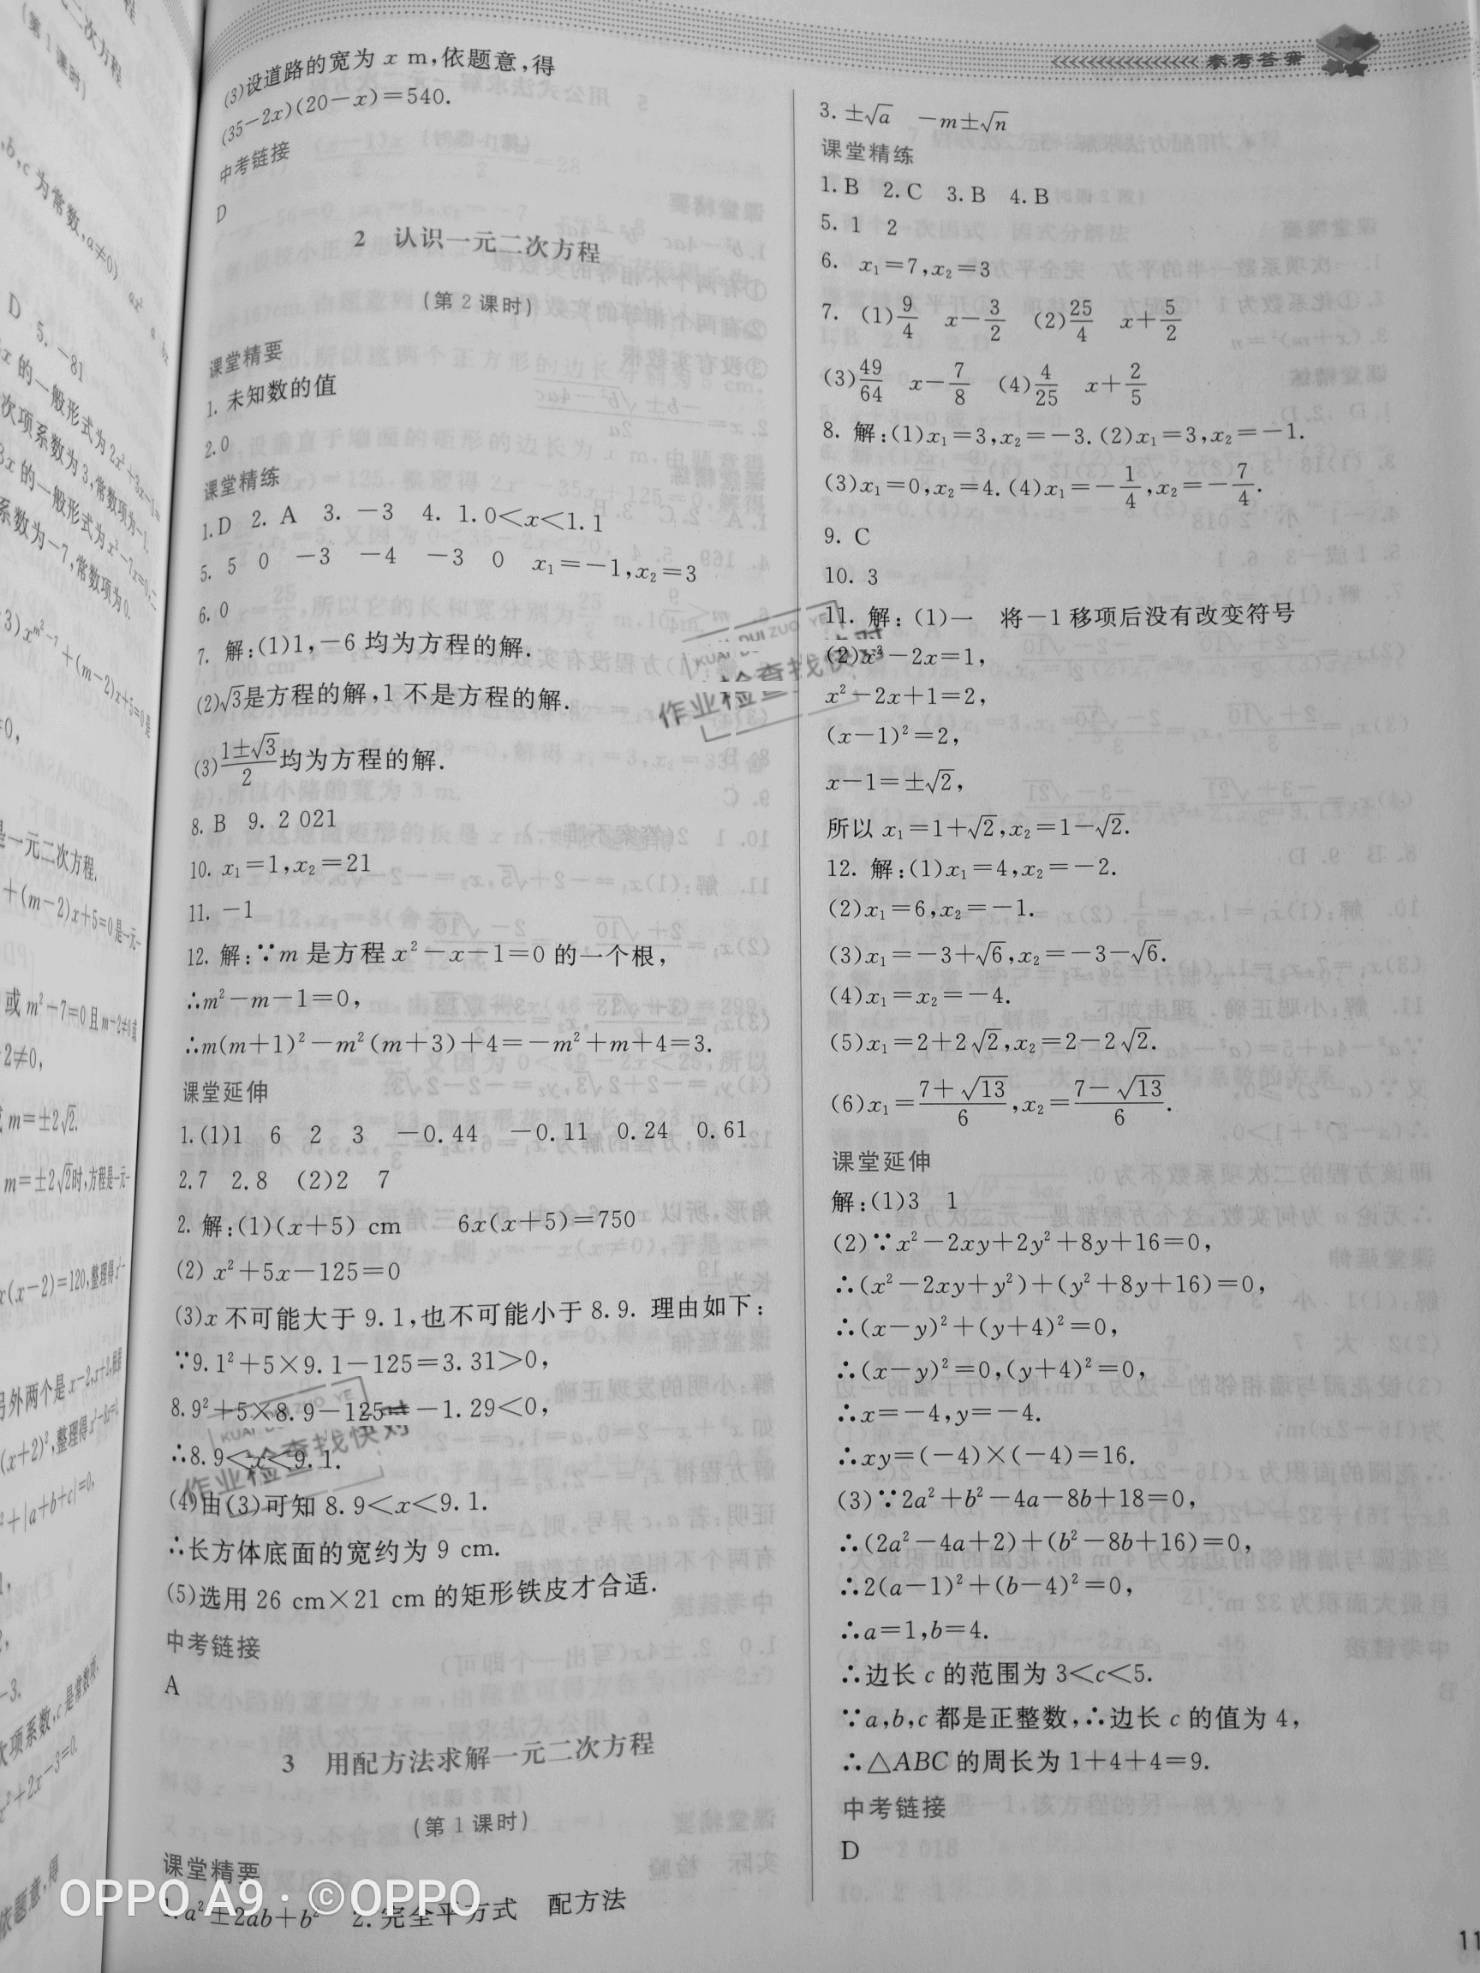 参考答案
(3)设道路的宽为 x m,依题意,得
(35-2x)(20-x)=540.
中考链接
D
2 认识一元二次方程
(第2课时)
课堂精要
1. 未知数的值
2.0
课堂精练
1.D 2. A 3. -3 4. 1.0<x<1.1
5. 5 0 -3 -4 -3 0 x₁=-1,x₂=3
6.0
7. 解:(1)1,-6均为方程的解.
(2)√3是方程的解,1不是方程的解.
(3)(1±√3)/2均为方程的解.
8. B 9. 2 021
10. x₁=1,x₂=21
11. -1
12. 解:∵m是方程x²-x-1=0的一个根,
∴m²-m-1=0,
∴m(m+1)²-m²(m+3)+4=-m²+m+4=3.
课堂延伸
1.(1)1 6 2 3 -0.44 -0.11 0.24 0.61
2.7 2.8 (2)2 7
2. 解:(1)(x+5) cm 6x(x+5)=750
(2) x²+5x-125=0
(3)x不可能大于9.1,也不可能小于8.9. 理由如下:
∵9.1²+5×9.1-125=3.31>0,
8.9²+5×8.9-125=-1.29<0,
∴8.9<x<9.1.
(4)由(3)可知8.9<x<9.1.
∴长方体底面的宽约为9 cm.
(5)选用26 cm×21 cm的矩形铁皮才合适.
中考链接
A
3 用配方法求解一元二次方程
(第1课时)
课堂精要
1. a²±2ab+b² 2. 完全平方式 配方法
3. ±√a -m±√n
课堂精练
1. B 2. C 3. B 4. B
5. 1 2
6. x₁=7,x₂=3
7. (1)9/4 x-3/2 (2)25/4 x+5/2
(3)49/64 x-7/8 (4)4/25 x+2/5
8. 解:(1)x₁=3,x₂=-3.(2)x₁=3,x₂=-1.
(3)x₁=0,x₂=4.(4)x₁=-1/4,x₂=-7/4.
9. C
10. 3
11. 解:(1)一 将-1移项后没有改变符号
(2)x²-2x=1,
x²-2x+1=2,
(x-1)²=2,
x-1=±√2,
所以x₁=1+√2,x₂=1-√2.
12. 解:(1)x₁=4,x₂=-2.
(2)x₁=6,x₂=-1.
(3)x₁=-3+√6,x₂=-3-√6.
(4)x₁=x₂=-4.
(5)x₁=2+2√2,x₂=2-2√2.
(6)x₁=(7+√13)/6,x₂=(7-√13)/6.
课堂延伸
解:(1)3 1
(2)∵x²-2xy+2y²+8y+16=0,
∴(x²-2xy+y²)+(y²+8y+16)=0,
∴(x-y)²+(y+4)²=0,
∴(x-y)²=0,(y+4)²=0,
∴x=-4,y=-4.
∴xy=(-4)×(-4)=16.
(3)∵2a²+b²-4a-8b+18=0,
∴(2a²-4a+2)+(b²-8b+16)=0,
∴2(a-1)²+(b-4)²=0,
∴a=1,b=4.
∴边长c的范围为3<c<5.
∵a,b,c都是正整数,∴边长c的值为4,
∴△ABC的周长为1+4+4=9.
中考链接
D
11
KUAI DUI ZUO YE
作业检查找快对
KUAI DUI ZUO YE
作业检查找快对
OPPO A9 · ©OPPO